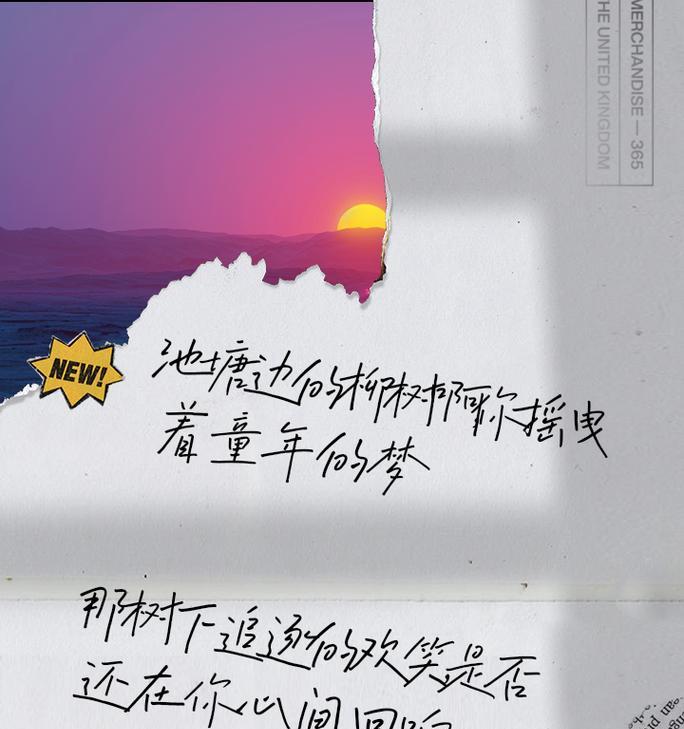 MERCHANDISE — 365
THE UNITED KINGDOM
NEW!
池塘边的柳树啊你摇曳
着童年的梦
那树下追逐的欢笑是否
还在你心间回响